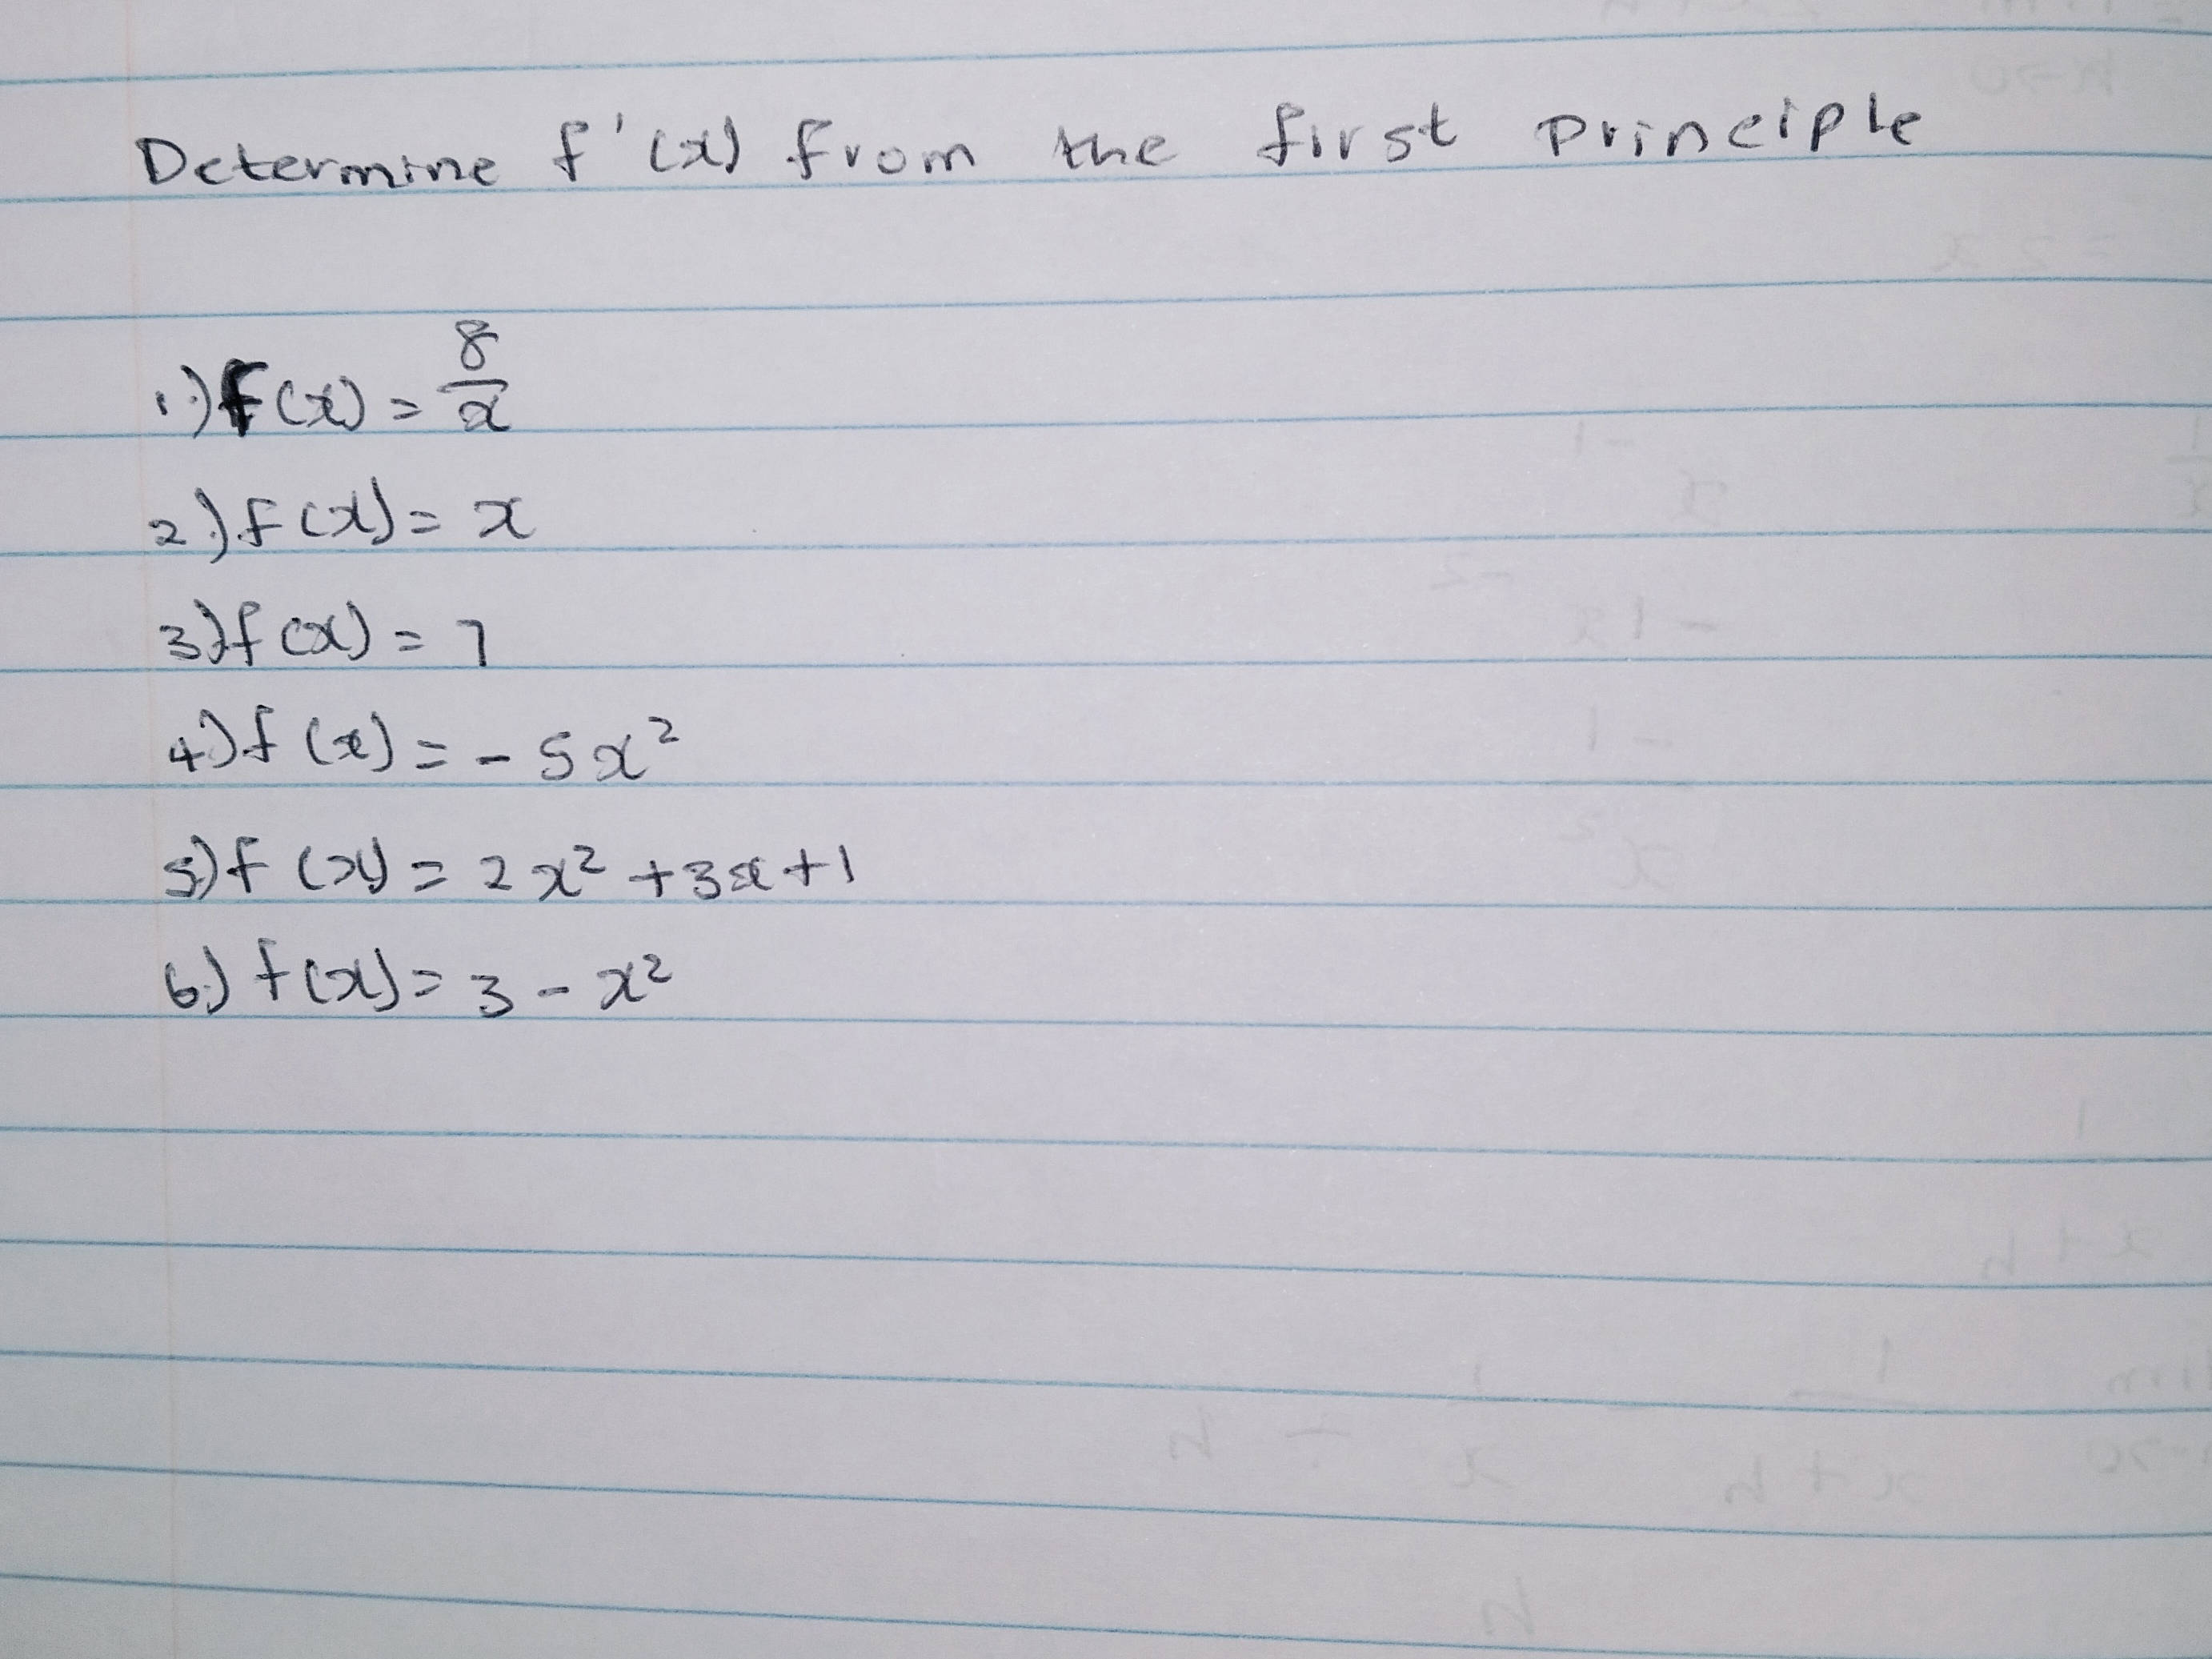 Determine f'(x) from the first principle
1.) f(x) = 8/x
2.) f(x) = x
3.) f(x) = 7
4.) f(x) = - 5x²
5.) f(x) = 2x² + 3x + 1
6.) f(x) = 3 - x²